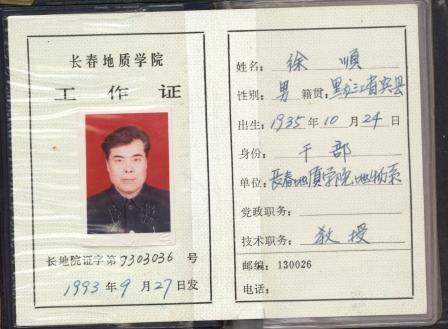 长春地质学院
工作证
长地院证字第9303036号
1993年9月27日发
姓名：徐顺
性别：男 籍贯：黑龙江省宾县
出生：1935年10月24日
身份：干部
单位：长春地质学院地物系
党政职务：
技术职务：教授
邮编：130026
电话：